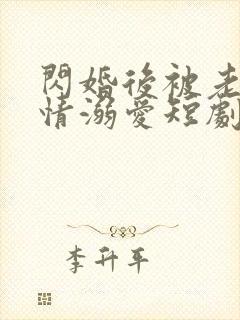 閃婚後被老
情溺愛短劇
李升平